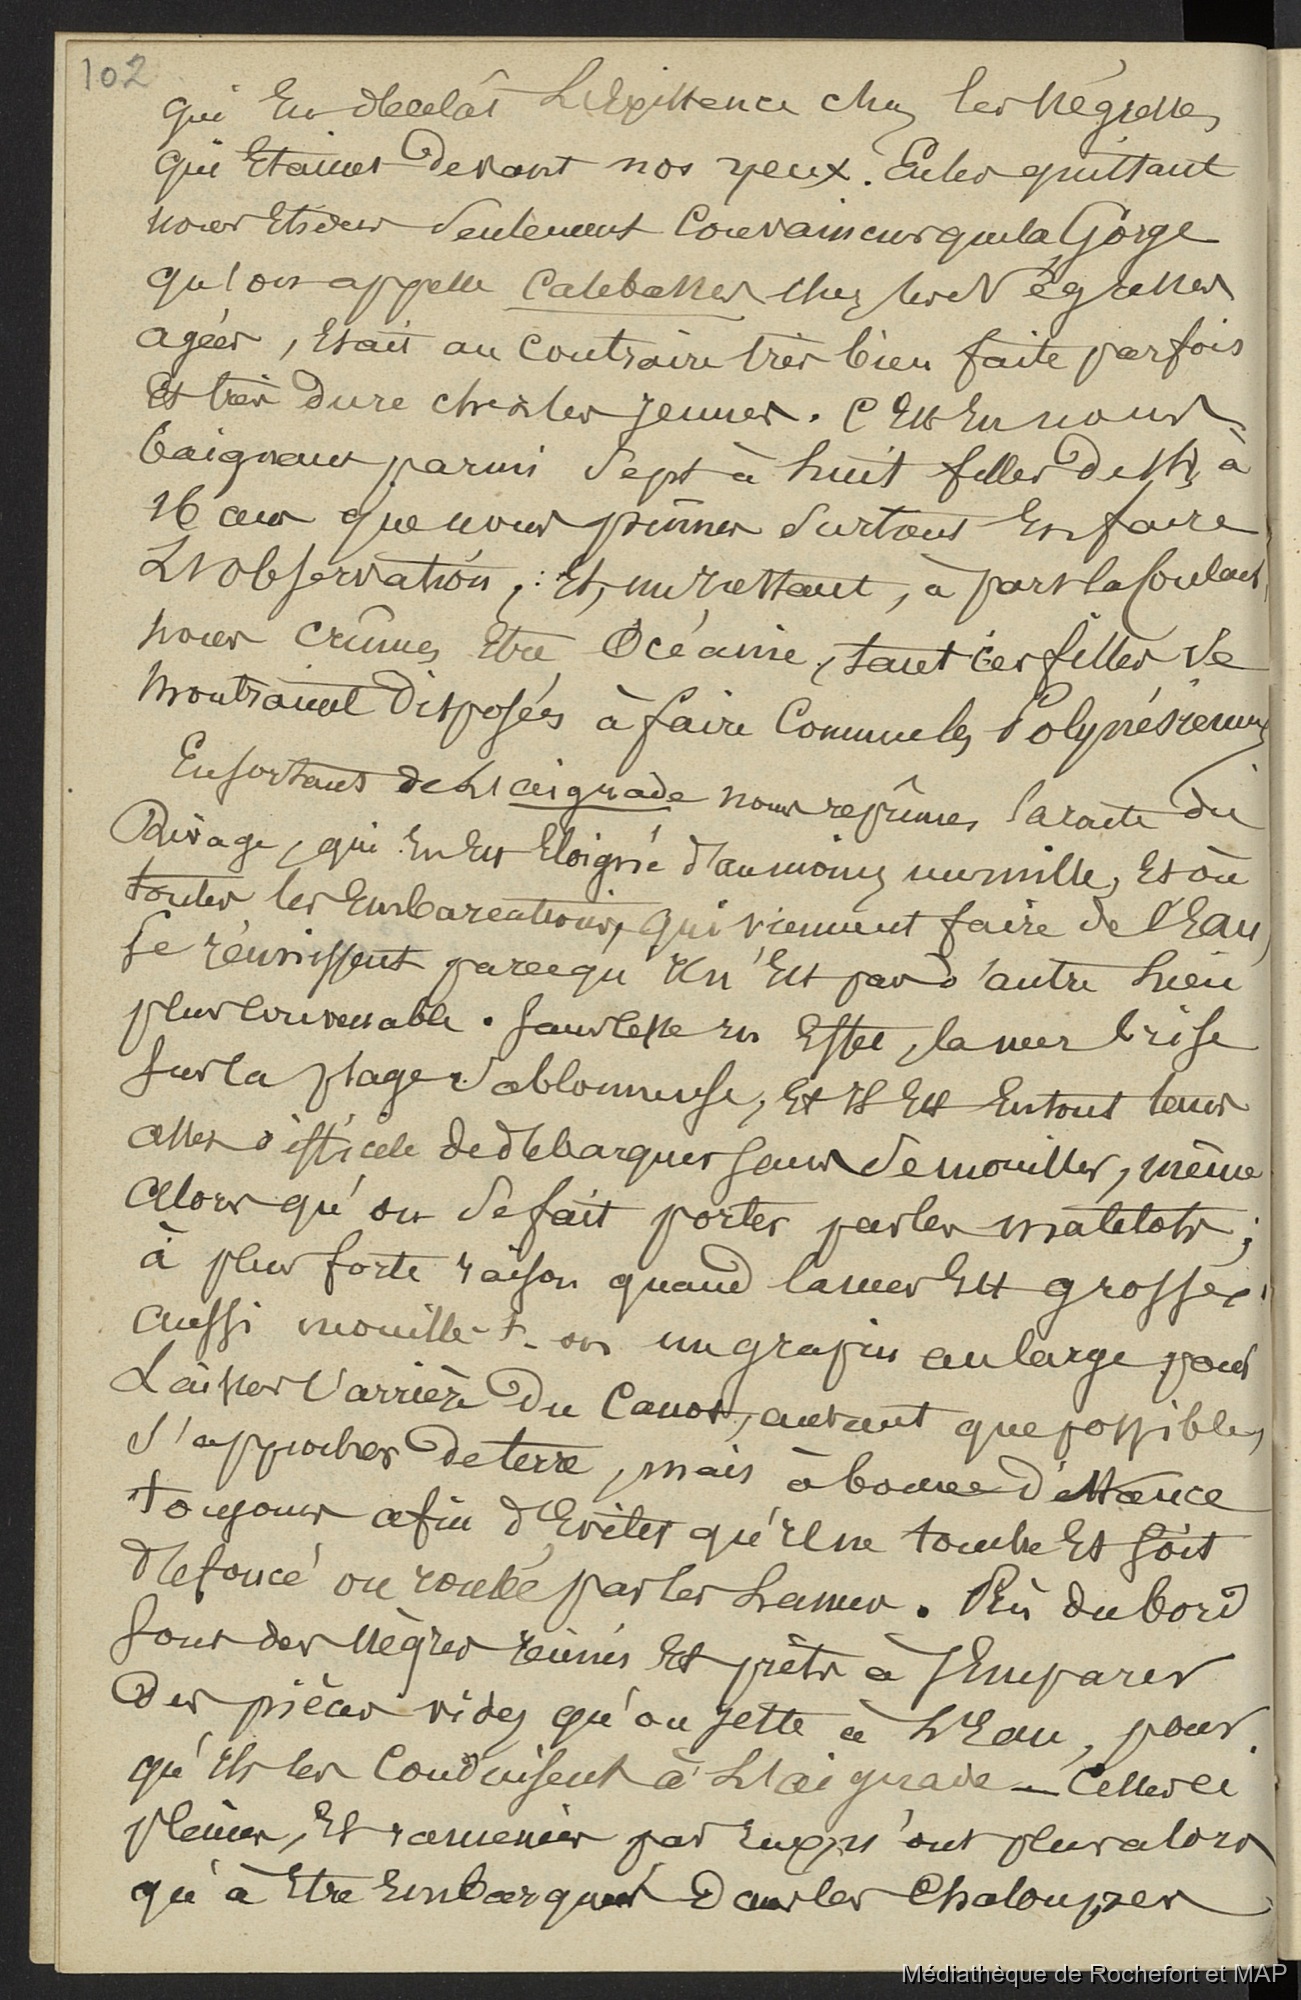 102
qui en décelât l'existence chez les négresses
qui étaient devant nos yeux. En les quittant
nous étions seulement convaincus que la gorge
qu'on appelle calebasses chez les négresses
agées, était au contraire très bien faite parfois
et très dure chez les jeunes. C'est en nous
baignant parmi sept à huit filles de à
16 ans que nous pûmes surtout en faire
l'observation; et, un instant, à part la couleur,
nous crûmes être Océanie, tant ces filles se
montraient disposées à faire comme les Polynésiennes
En sortant de l'aiguade nous reprîmes la route du
Rivage, qui en est éloigné d'au moins un mille, et où
toutes les embarcations, qui viennent faire de l'eau,
se réunissent parcequ'il n'est pas d'autre lieu
plus convenable. Sans cesse en effet, la mer brise
sur la plage sablonneuse, et il est en tout tems
assez difficile de débarquer sans se mouiller, même
alors qu'on se fait porter par les matelots;
à plus forte raison quand la mer est grosse;
aussi mouille-t-on un grapin au large pour
laisser l'arrière du canot, autant que possible,
s'approcher de terre, mais à bonne distance
toujours afin d'éviter qu'il ne tombe et soit
défoncé ou roulé par les lames. Près du bord
sont des nègres réunis et prêts à s'emparer
des pièces vides qu'on jette à l'eau, pour
qu'ils les conduisent à l'aiguade — Celles ci
pleines, et ramenées par eux, n'ont plus alors
qu'à être embarqués dans les chaloupes
Médiathèque de Rochefort et MAP